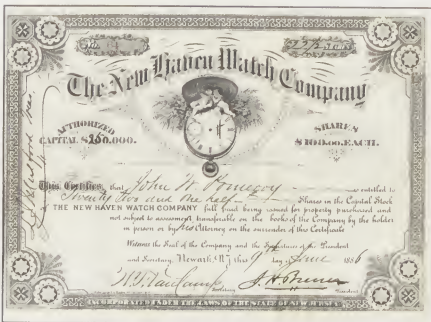 22 1/2
The New Haven Watch Company
AUTHORIZED
CAPITAL $150,000.
SHARES
$100.00. EACH.
This Certifies, that John W. Pomeroy entitled to
Twenty two and one half Shares in the Capital Stock
of THE NEW HAVEN WATCH COMPANY full paid being issued for property purchased and
not subject to assessment transferable on the books of the Company by the holder
in person or by his Attorney on the surrender of this Certificate
Witness the Seal of the Company and the Signatures of the President
and Secretary. Newark N.J. this 9th day June 1886
Secretary
President
INCORPORATED UNDER THE LAWS OF THE STATE OF NEW JERSEY